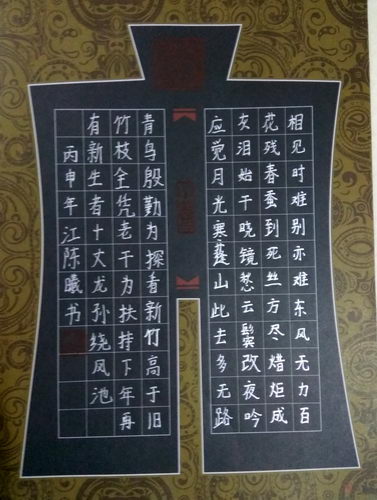 相见时难别亦难东风无力百
花残春蚕到死丝方尽蜡炬成
灰泪始干晓镜愁云鬓改夜吟
应觉月光寒蓬山此去多无路
青鸟殷勤为探看新竹高于旧
竹枝全凭老干为扶持下年再
有新生者十丈龙孙绕凤池
丙申年江陈曦书